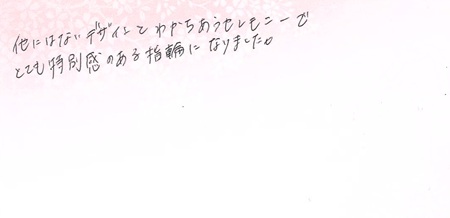 他にはないデザインとわかちあうセレモニーで
とても特別感のある指輪になりました。